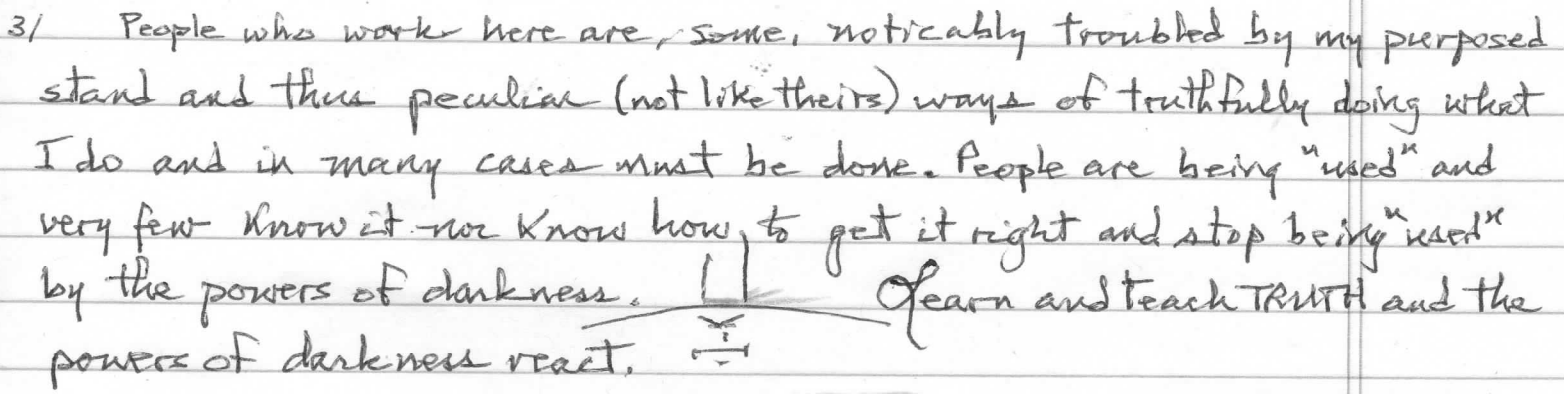 3/ People who work here are, some, noticably troubled by my purposed
stand and thus peculiar (not like theirs) ways of truthfully doing what
I do and in many cases must be done. People are being "used" and
very few know it nor know how, to get it right and stop being "used"
by the powers of darkness. Learn and teach TRUTH and the
powers of darkness react.